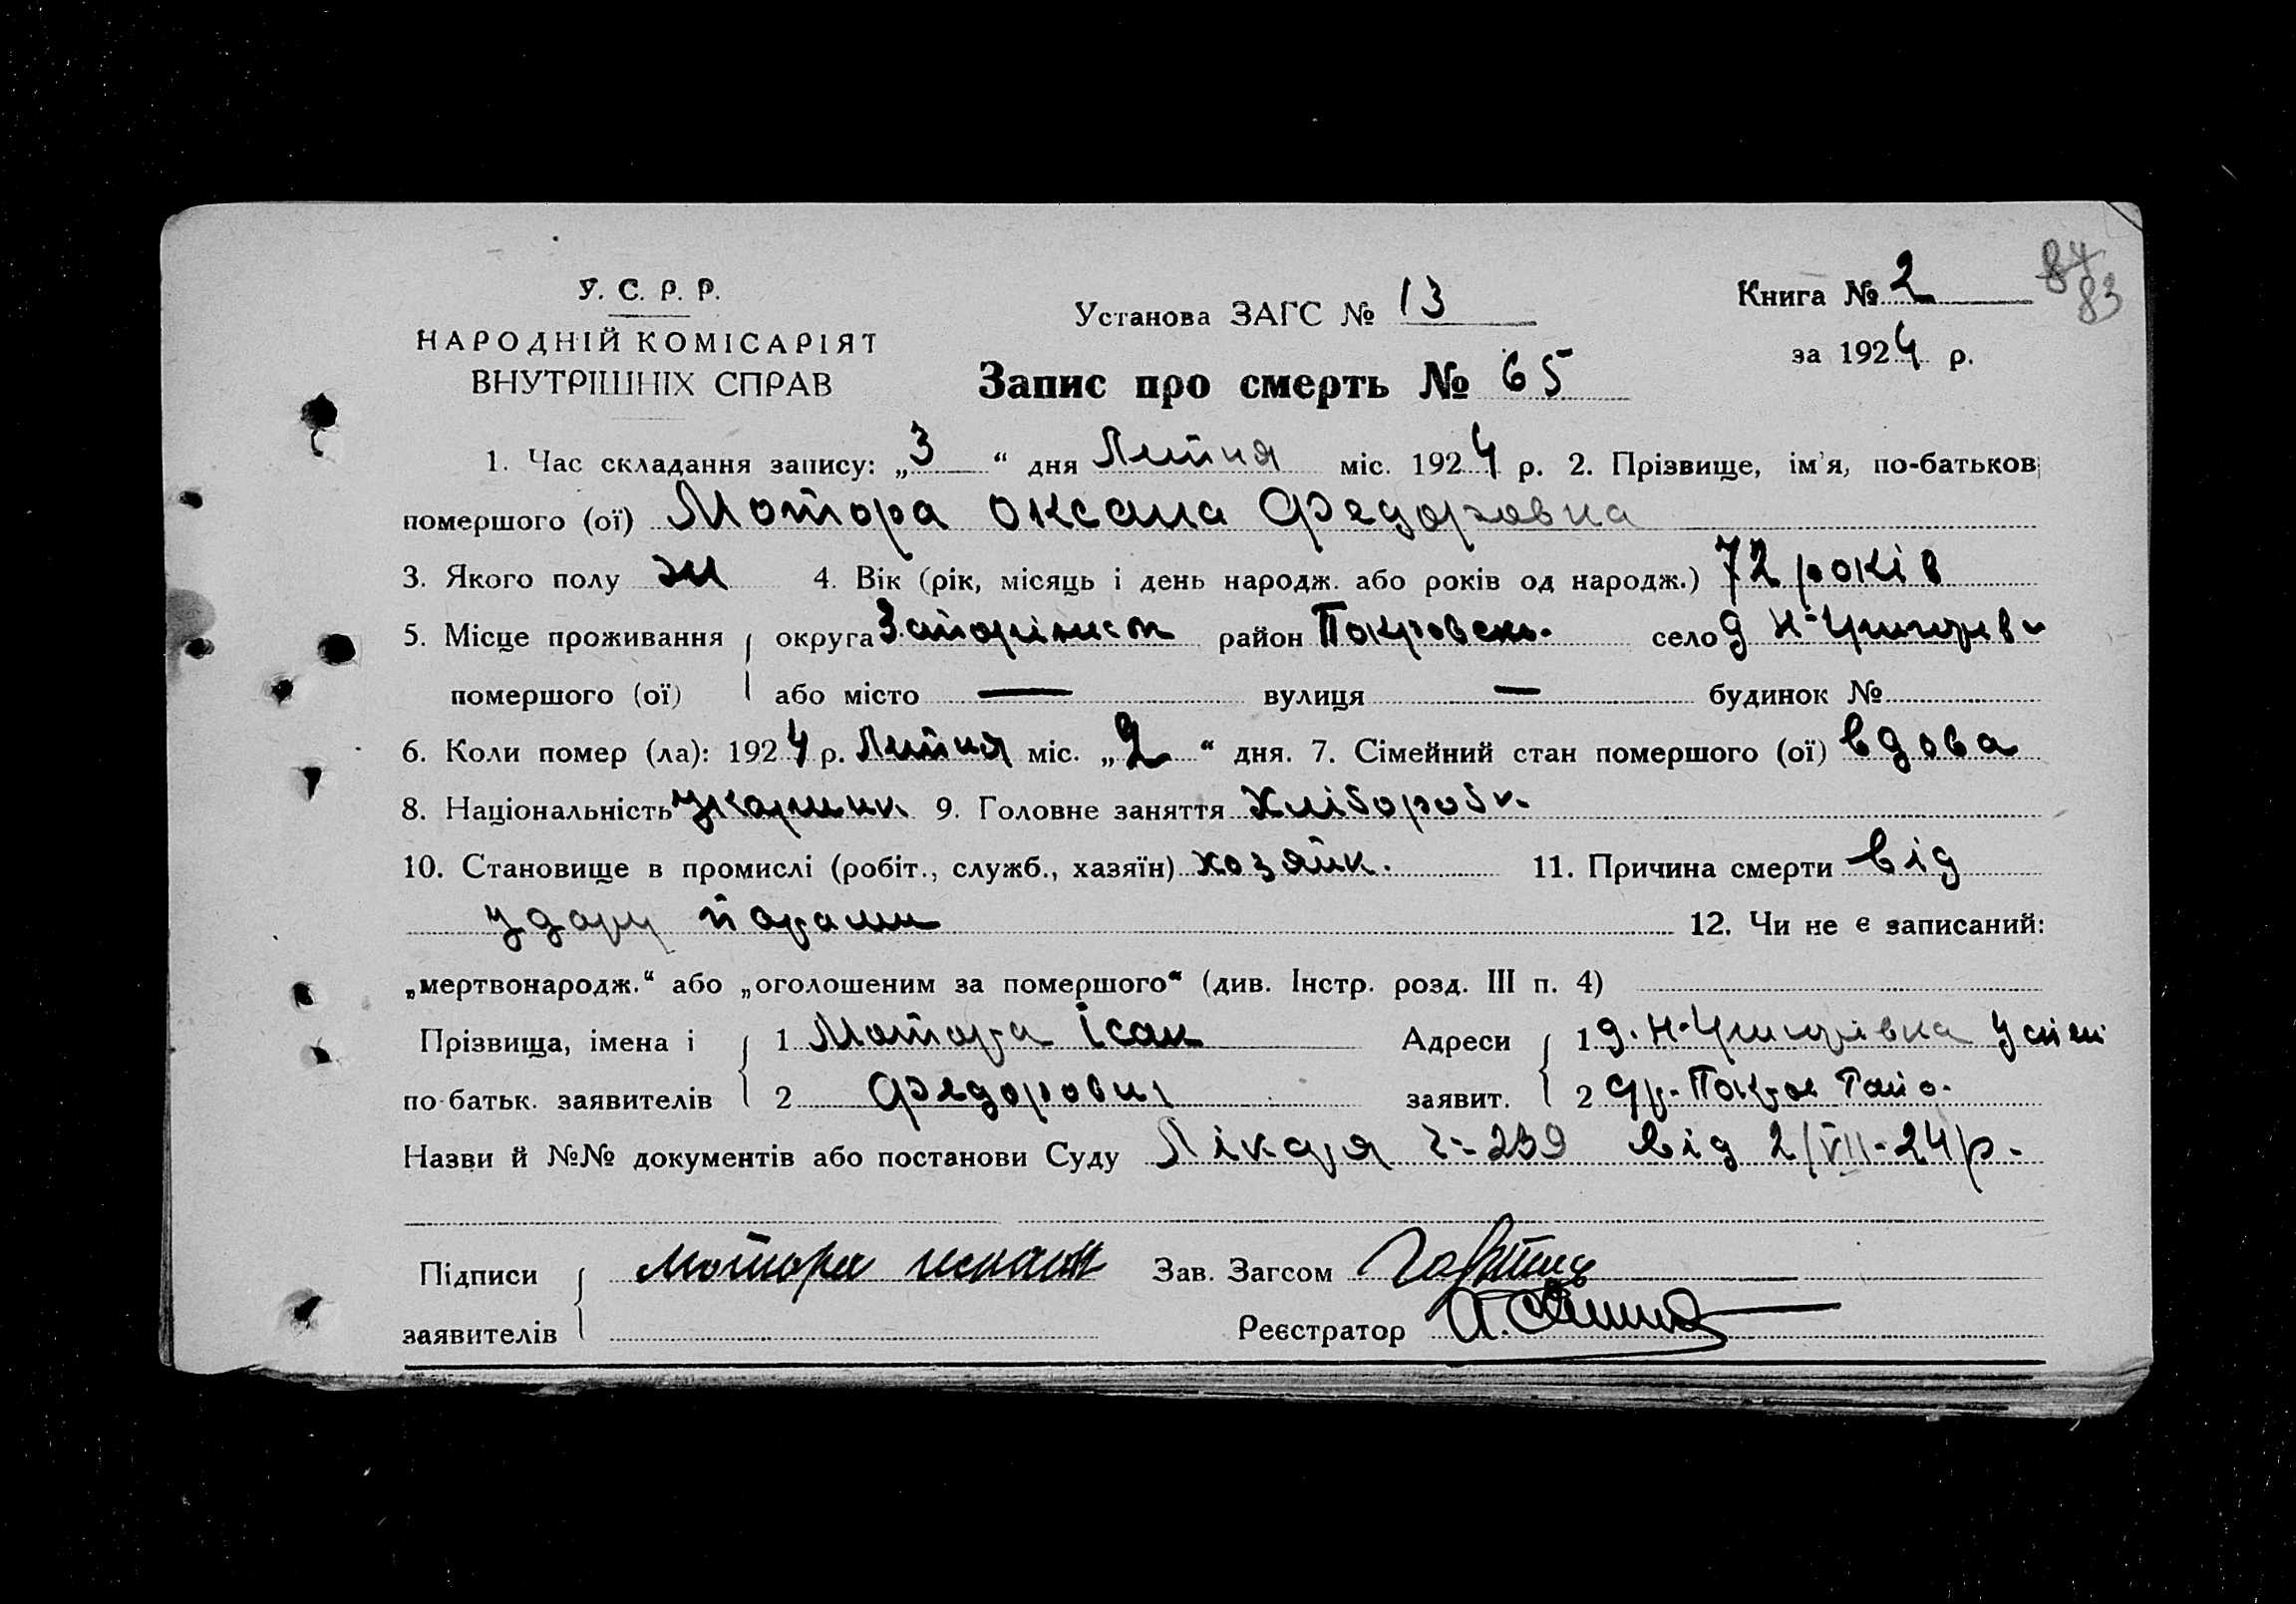 84
83
У. С. Р. Р.
НАРОДНІЙ КОМІСАРІЯТ
ВНУТРІШНІХ СПРАВ
Установа ЗАГС № 13
Книга № 2
за 1924 р.
Запис про смерть № 65
1. Час складання запису: „3“ дня Липня міс. 1924 р. 2. Прізвище, ім'я, по-батькові
помершого (ої) Мотора Оксана Федоровна
3. Якого полу ж 4. Вік (рік, місяць і день народж. або років од народж.) 72 років
5. Місце проживання округа район Покровськ. село д
помершого (ої) або місто — вулиця — будинок №
6. Коли помер (ла): 1924 р. Липня міс. „2“ дня. 7. Сімейний стан помершого (ої) вдова
8. Національність 9. Головне заняття Хлібороб
10. Становище в промислі (робіт., служб., хазяїн) хозяйк. 11. Причина смерти від
удару 12. Чи не є записаний:
„мертвонародж.“ або „оголошеним за помершого“ (див. Інстр. розд. III п. 4)
Прізвища, імена і 1 Мотора Ісак Адреси 1 д.
по-батьк. заявителів 2 Федорович заявит. 2
Назви й №№ документів або постанови Суду Лікаря 239 від 2/VII-24 р.
Підписи Мотора Зав. Загсом
заявителів Реєстратор